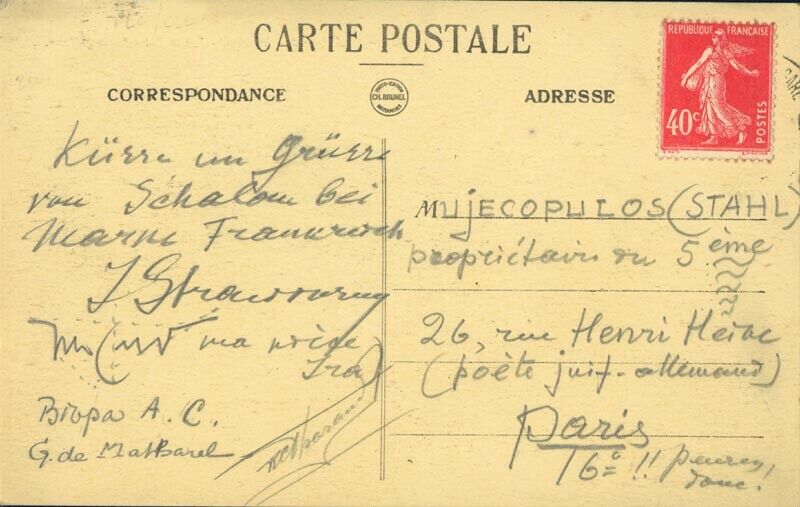 CARTE POSTALE
CORRESPONDANCE
CH. BRUNEL
ADRESSE
REPUBLIQUE FRANÇAISE
40c
POSTES
Küsse un Grüsse
von Schalom bei
Marne Frankreich
I Strawinsky
ma nièce
Ira
A. C.
G. de
MUJECOPULOS (STAHL)
propriétaire du 5ème
26, rue Henri Heine
(poète juif-allemand)
Paris
16e !!
donc.